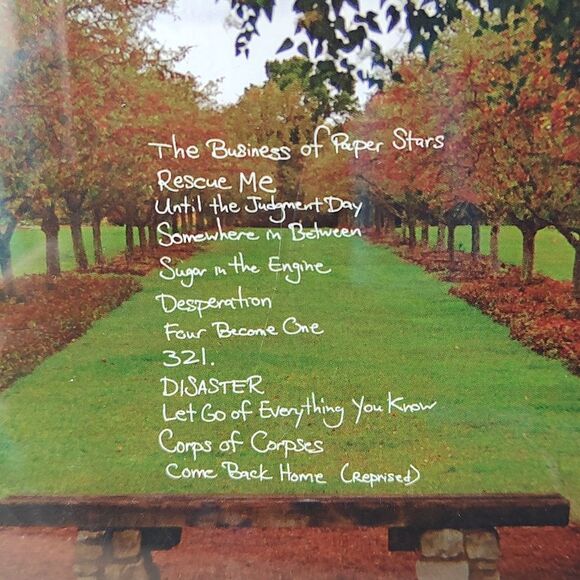 The Business of Paper Stars
Rescue Me
Until the Judgment Day
Somewhere in Between
Sugar in the Engine
Desperation
Four Become One
321.
DISASTER
Let Go of Everything You Know
Corps of Corpses
Come Back Home (Reprised)